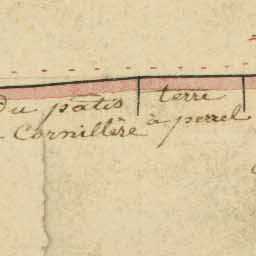 Du pâtis terre
Cornillère à perrel